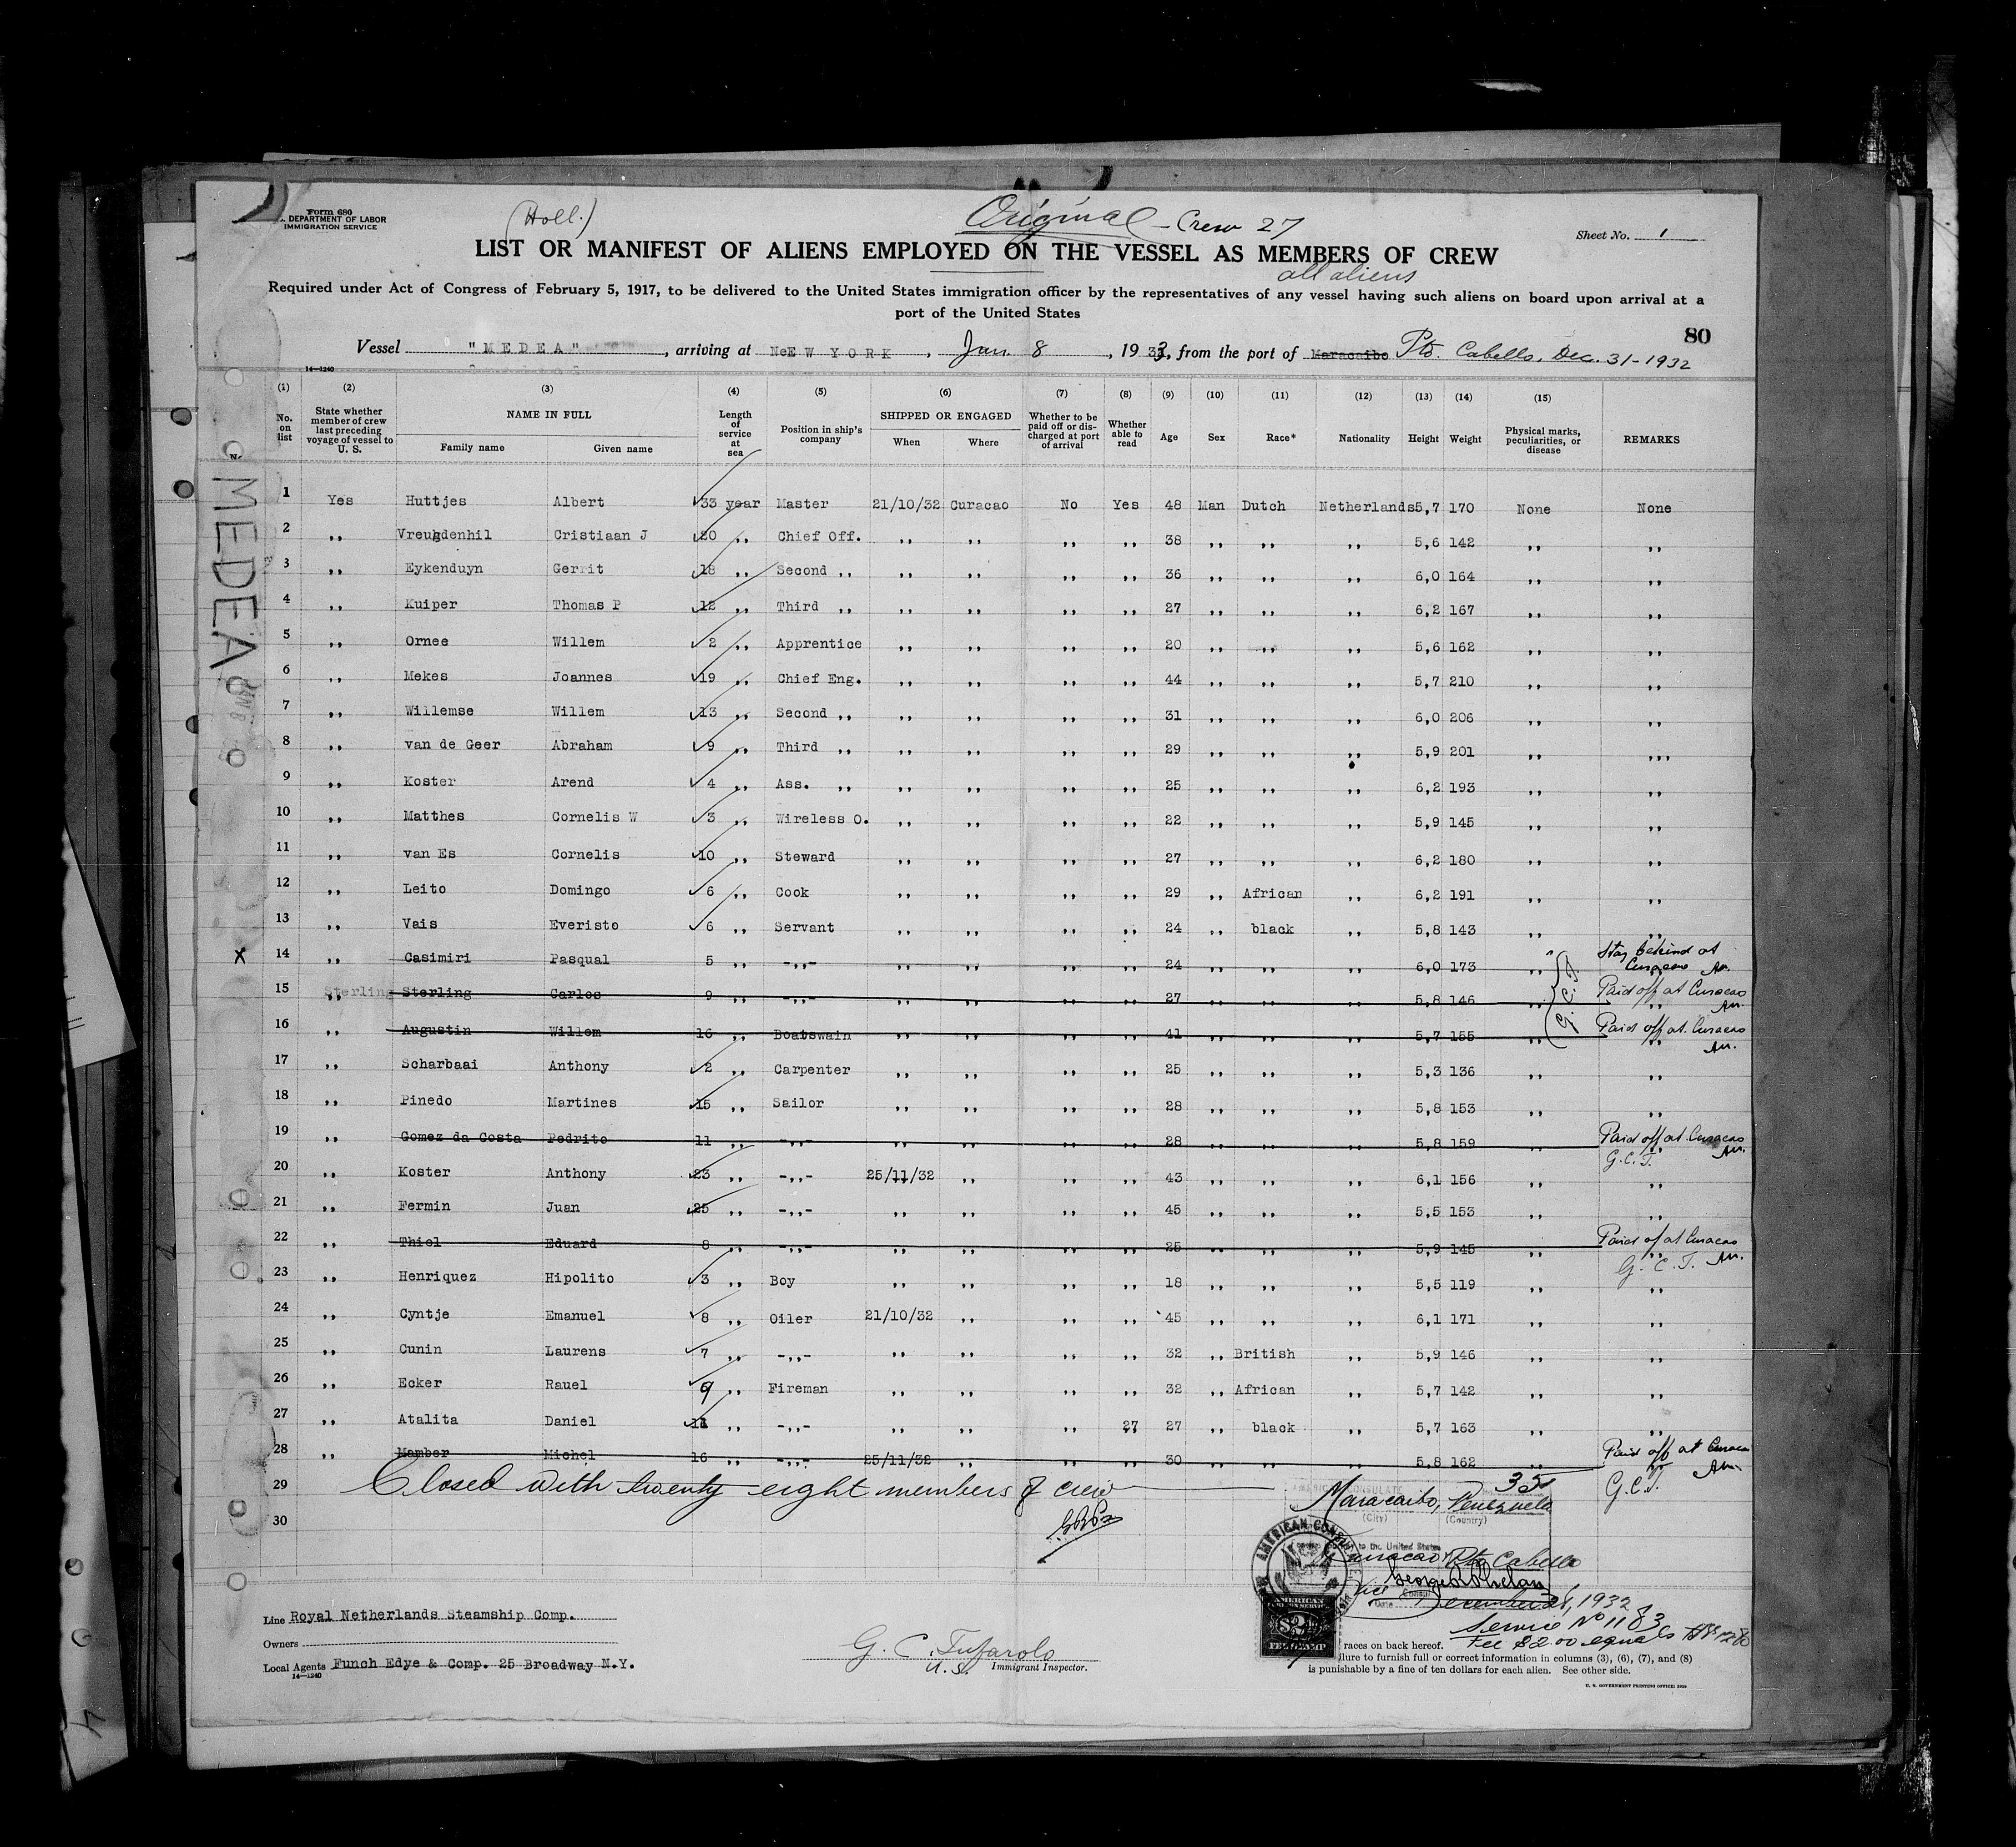 Form 680
DEPARTMENT OF LABOR
IMMIGRATION SERVICE
(Holl.)
Original - Crew 27
Sheet No. 1
LIST OR MANIFEST OF ALIENS EMPLOYED ON THE VESSEL AS MEMBERS OF CREW
all aliens
Required under Act of Congress of February 5, 1917, to be delivered to the United States immigration officer by the representatives of any vessel having such aliens on board upon arrival at a
port of the United States
80
Vessel "MEDEA", arriving at NeEW YORK, Jan. 8, 1933, from the port of Maracaibo Pto. Cabello, Dec. 31-1932
14-1240
(1) (2) (3) (4) (5) (6) (7) (8) (9) (10) (11) (12) (13) (14) (15)
No. on list | State whether member of crew last preceding voyage of vessel to U. S. | NAME IN FULL Family name Given name | Length of service at sea | Position in ship's company | SHIPPED OR ENGAGED When Where | Whether to be paid off or discharged at port of arrival | Whether able to read | Age | Sex | Race* | Nationality | Height | Weight | Physical marks, peculiarities, or disease | REMARKS
MEDEA
1 Yes Huttjes Albert 33 year Master 21/10/32 Curacao No Yes 48 Man Dutch Netherlands 5,7 170 None None
2 ,, Vreugdenhil Cristiaan J 20 ,, Chief Off. ,, ,, ,, ,, 38 ,, ,, ,, 5,6 142 ,, ,,
3 ,, Eykenduyn Gerrit 18 ,, Second ,, ,, ,, ,, ,, 36 ,, ,, ,, 6,0 164 ,, ,,
4 ,, Kuiper Thomas P 12 ,, Third ,, ,, ,, ,, ,, 27 ,, ,, ,, 6,2 167 ,, ,,
5 ,, Ornee Willem 2 ,, Apprentice ,, ,, ,, ,, 20 ,, ,, ,, 5,6 162 ,, ,,
6 ,, Mekes Joannes 19 ,, Chief Eng. ,, ,, ,, ,, 44 ,, ,, ,, 5,7 210 ,, ,,
7 ,, Willemse Willem 13 ,, Second ,, ,, ,, ,, ,, 31 ,, ,, ,, 6,0 206 ,, ,,
8 ,, van de Geer Abraham 9 ,, Third ,, ,, ,, ,, ,, 29 ,, ,, ,, 5,9 201 ,, ,,,
9 ,, Koster Arend 4 ,, Ass. ,, ,, ,, ,, ,, 25 ,, ,, ,, 6,2 193 ,, ,,
10 ,, Matthes Cornelis W 3 ,, Wireless O. ,, ,, ,, ,, 22 ,, ,, ,, 5,9 145 ,, ,,
11 ,, van Es Cornelis 10 ,, Steward ,, ,, ,, ,, 27 ,, ,, ,, 6,2 180 ,, ,,
12 ,, Leito Domingo 6 ,, Cook ,, ,, ,, ,, 29 ,, African ,, 6,2 191 ,, ,,
13 ,, Vais Everisto 6 ,, Servant ,, ,, ,, ,, 24 ,, black ,, 5,8 143 ,, ,,
X 14 ,, Casimiri Pasqual 5 ,, -,,- ,, ,, ,, ,, 24 ,, ,, ,, 6,0 173 ,, Stay behind at Curacao
15 ,, Sterling Sterling Carlos 9 ,, -,,- ,, ,, ,, ,, 27 ,, ,, ,, 5,8 146 ,, G.C.T. Paid off at Curacao
16 ,, Augustin Willem 16 ,, Boatswain ,, ,, ,, ,, 41 ,, ,, ,, 5,7 155 ,, Paid off at Curacao
17 ,, Scharbaai Anthony 2 ,, Carpenter ,, ,, ,, ,, 25 ,, ,, ,, 5,3 136 ,, ,,
18 ,, Pinedo Martines 15 ,, Sailor ,, ,, ,, ,, 28 ,, ,, ,, 5,8 153 ,, ,,
19 ,, Gomez da Costa Pedrito 11 ,, -,,- ,, ,, ,, ,, 28 ,, ,, ,, 5,8 159 ,, Paid off at Curacao
G.C.T.
20 ,, Koster Anthony 23 ,, -,,- 25/11/32 ,, ,, ,, 43 ,, ,, ,, 6,1 156 ,, ,,
21 ,, Fermin Juan 25 ,, -,,- ,, ,, ,, ,, 45 ,, ,, ,, 5,5 153 ,, ,,
22 ,, Thiel Eduard 8 ,, -,,- ,, ,, ,, ,, 25 ,, ,, ,, 5,9 145 ,, Paid of at Curacao
G.C.T.
23 ,, Henriquez Hipolito 3 ,, Boy ,, ,, ,, ,, 18 ,, ,, ,, 5,5 119 ,, ,,
24 ,, Cyntje Emanuel 8 ,, Oiler 21/10/32 ,, ,, ,, 45 ,, ,, ,, 6,1 171 ,, ,,
25 ,, Cunin Laurens 7 ,, -,,- ,, ,, ,, ,, 32 ,, British ,, 5,9 146 ,, ,,
26 ,, Ecker Rauel 9 ,, Fireman ,, ,, ,, ,, 32 ,, African ,, 5,7 142 ,, ,,
27 ,, Atalita Daniel 11 ,, -,,- ,, ,, ,, 27 27 ,, black ,, 5,7 163 ,, ,,
28 ,, Mamber Michel 16 ,, -,,- 25/11/32 ,, ,, ,, 30 ,, ,, ,, 5,8 162 ,, Paid off at Curacao
G.C.T.
29 Closed with twenty eight members of crew
30
35
AMERICAN CONSULATE
Maracaibo, Venezuela
(City) (Country)
to the United States
Curacao, Pto Cabello
George R Phelan
Vice Consul
Date December 21, 1932
Service No 1183
Fee $2.00 equals
AMERICAN CONSULATE
AMERICAN
$2
FEE STAMP
Line Royal Netherlands Steamship Comp.
Owners
Local Agents Funch Edye & Comp. 25 Broadway N.Y.
14-1240
G. C. Tufarolo
U. S. Immigrant Inspector.
races on back hereof.
ilure to furnish full or correct information in columns (3), (6), (7), and (8)
is punishable by a fine of ten dollars for each alien. See other side.
U. S. GOVERNMENT PRINTING OFFICE